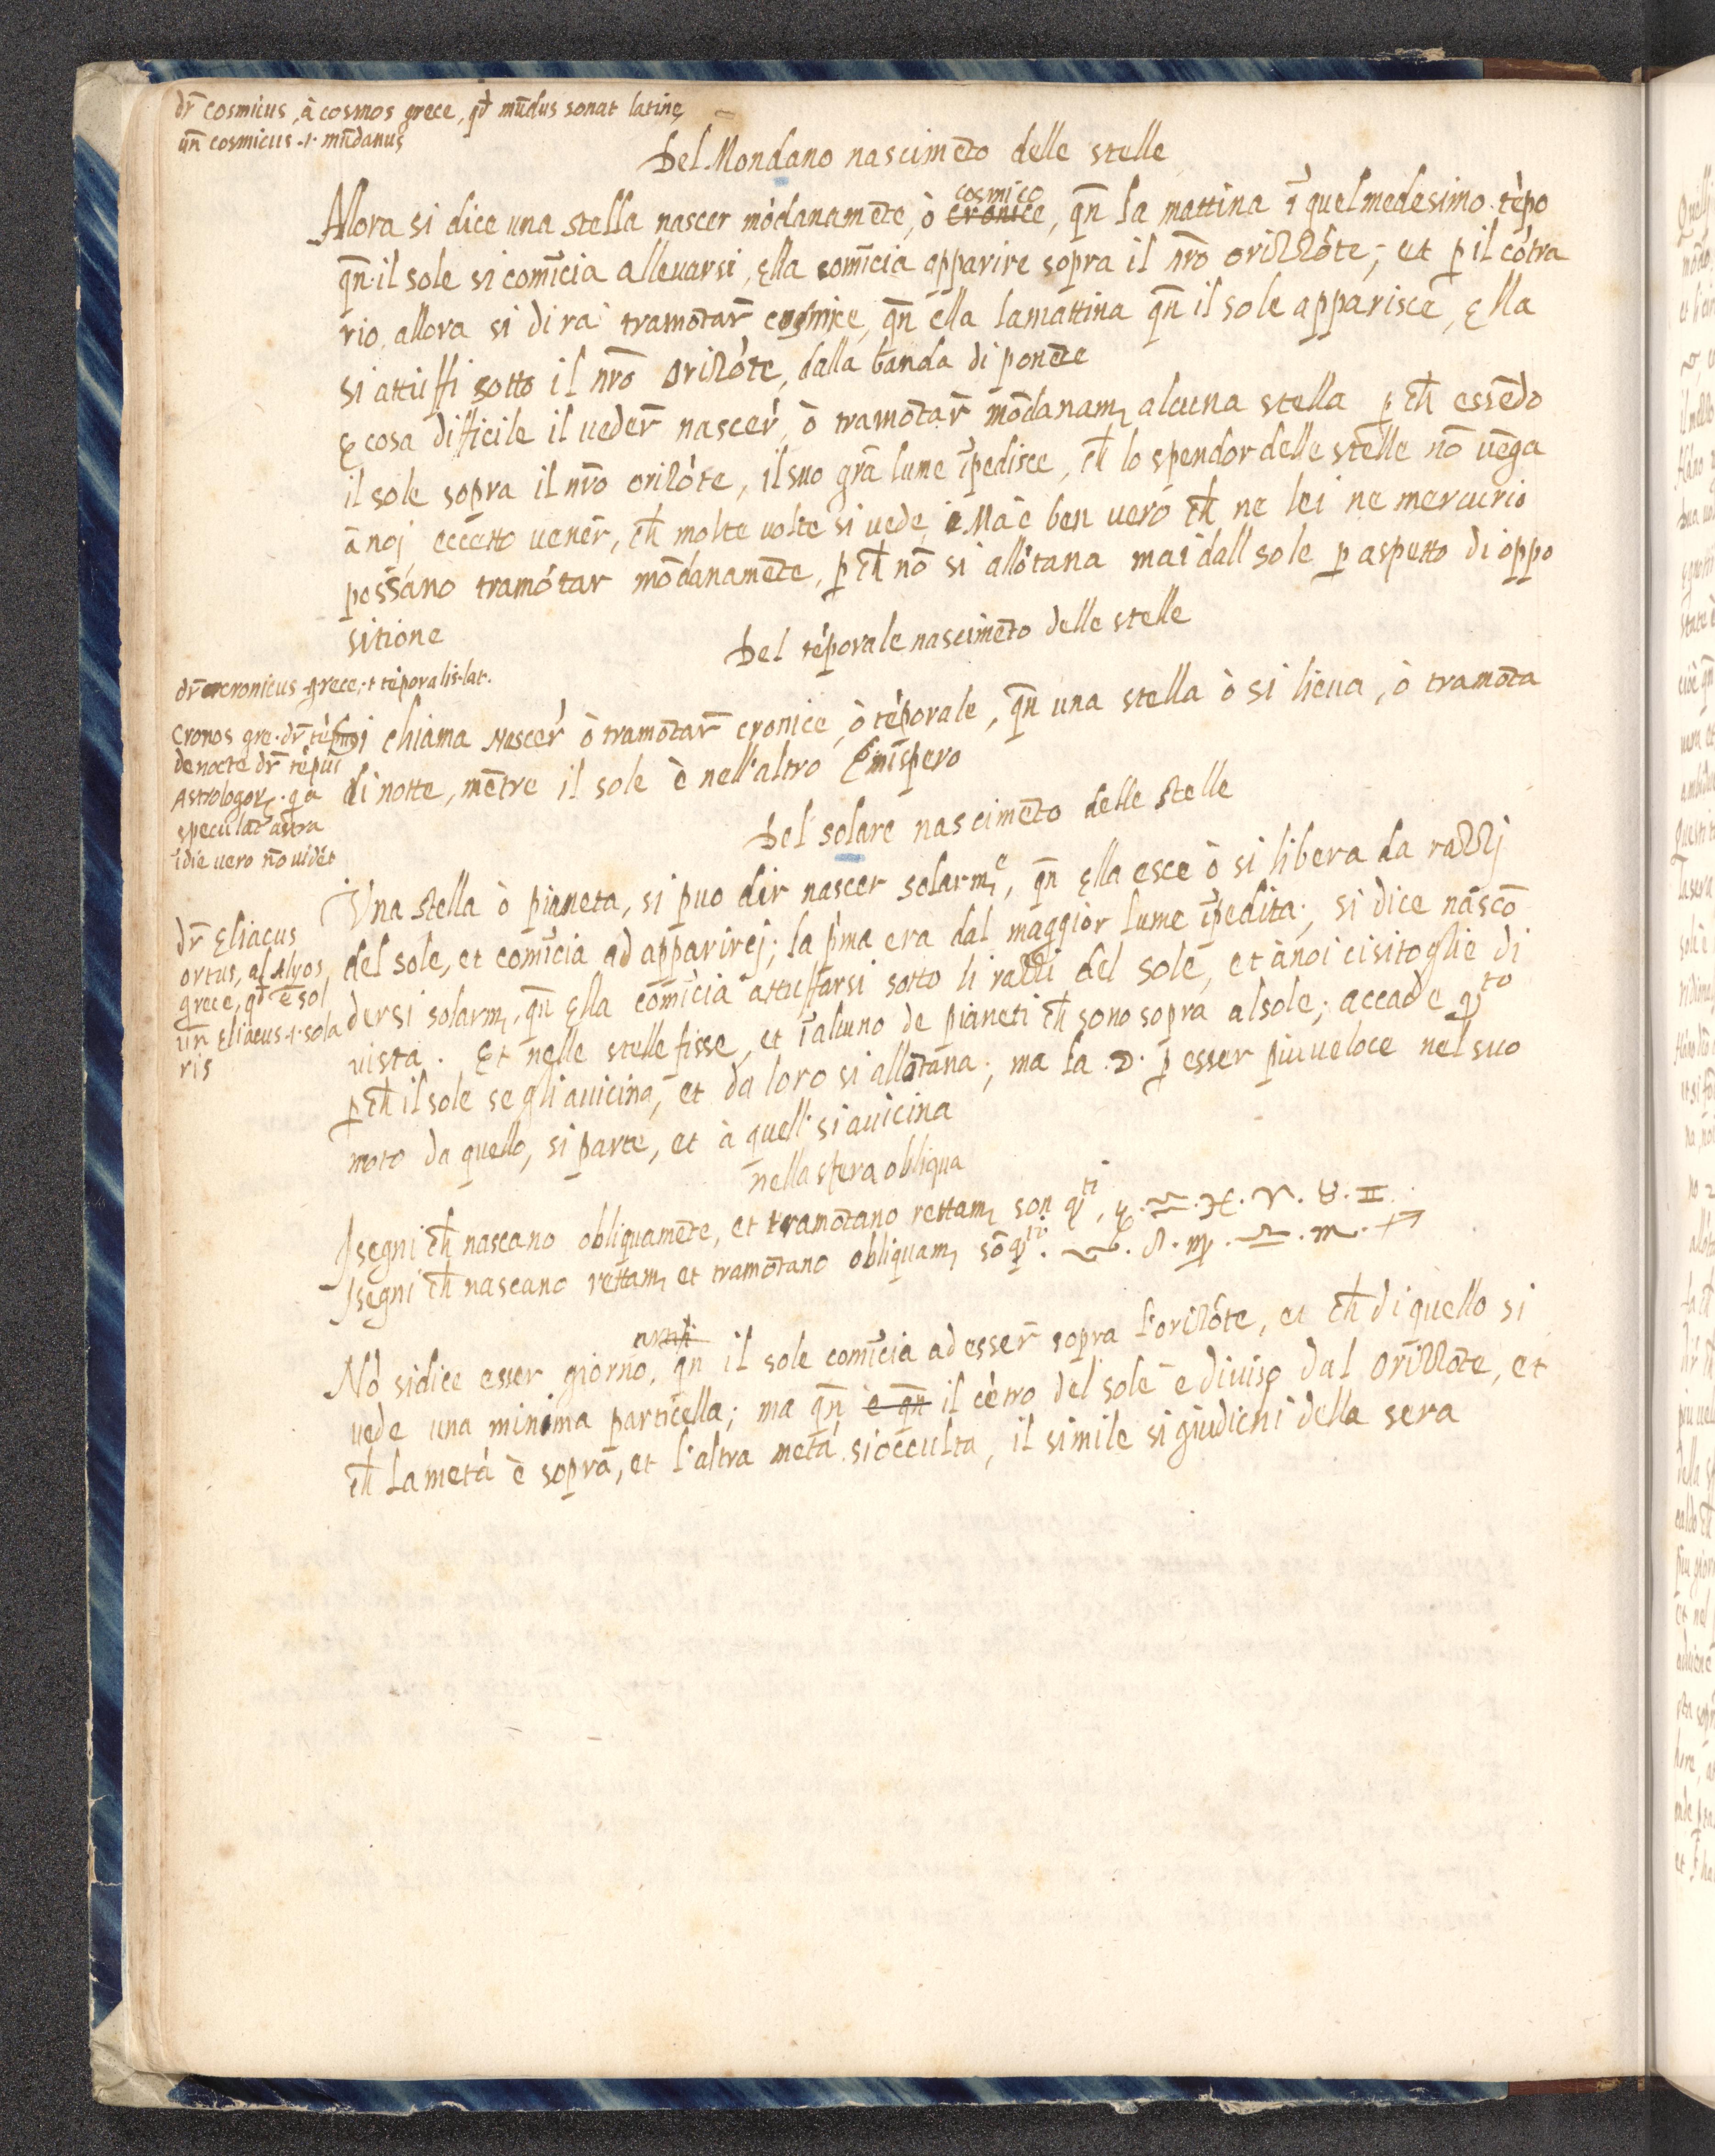 dr̃ Cosmicus, à cosmos grece, qd̃ mũdus sonat latinę
un̄ cosmicus .i. mũdanus
Del Mondano nascimēto delle stelle
cosmico
Allora si dice una stella nascer mōdanamēte, ò cronice, qn̄ la mattina ī quel medesimo tēpo
qn̄ il sole si comīcia alleuarsi, ella comīcia apparire sopra il nr̄o orizzōte; et p il cōtra
rio, allora si dira tramōtar̄ cosmice, qn̄ ella la mattina qn̄ il sole apparisce, ella
si attuffi sotto il nr̄o orizōte, dalla banda di ponēte
E cosa difficile il ueder̄ nascer̄, ò tramōtar̄ mōdanam̄ alcuna stella p ch̄ essēdo
il sole sopra il nr̄o orizōte, il suo grā lume īpedisce, ch̄ lo spendor delle stelle nō uēga
à noj eccetto uener̄, ch̄ molte uolte si uede, Ma è ben uero ch̄ ne lei ne mercurio
possano tramōtar mōdanamēte, p ch̄ nō si allōtana mai dall sole p aspetto di oppo
sitione
Del tēporale nascimēto delle stelle
dr̄ cronicus grece, .i. tēporalis lat.
Cronos gre. dr̄ tēpus
de nocte dr̄ tēpus
Astrologor. q̄a
speculāt astra
ī die uero nō uidēt
Si chiama Nascer̄ ò tramōtar̄ cronice, ò tēporale, qn̄ una stella ò si lieua, ò tramōta
di notte, mētre il sole è nell'altro Emispero
Del solare nascimēto delle stelle
dr̄ Eliacus
ortus, ab Alyos
grece, qd̄ ē sol
un̄ Eliacus .i. sola
ris
Vna stella ò pianeta, si puo dir nascer solarm̄e, qn̄ ella esce ò si libera da razzj
del sole, et comīcia ad apparirej; la p̄ma era dal maggior lume īpedita; si dice nascō
dersi solarm̄, qn̄ ella comīcia attuffarsi sotto li razzi del sole, et à noi ci si toglie di
uista. Et nelle stelle fisse, et ī alcuno de pianeti ch̄ sono sopra al sole; accade q̄to
p ch̄ il sole se gli auicina, et da loro si allōtana; ma la ☽ p esser piu ueloce nel suo
moto da quello, si parte, et à quell' si auicina
nella sfera obliqua
I segni ch̄ nascano obliquamēte, et tramōtano rettam̄ son q̄ti, ♑. ♒. ♓. ♈. ♉. ♊.
I segni ch̄ nascano rettam̄ et tramōtano obliquam̄ sō q̄ti. ♋. ♌. ♍. ♎. ♏. ♐
Nō si dice esser giorno, qn̄ il sole comīcia ad esser̄ sopra l'orizōte, et ch̄ di quello si
uede una minima particella; ma qn̄ è qn̄ il cētro del sole è diuiso dal orizzōte, et
ch̄ la metà è sopra, et l'altra metà si occulta, il simile si giudichi della sera